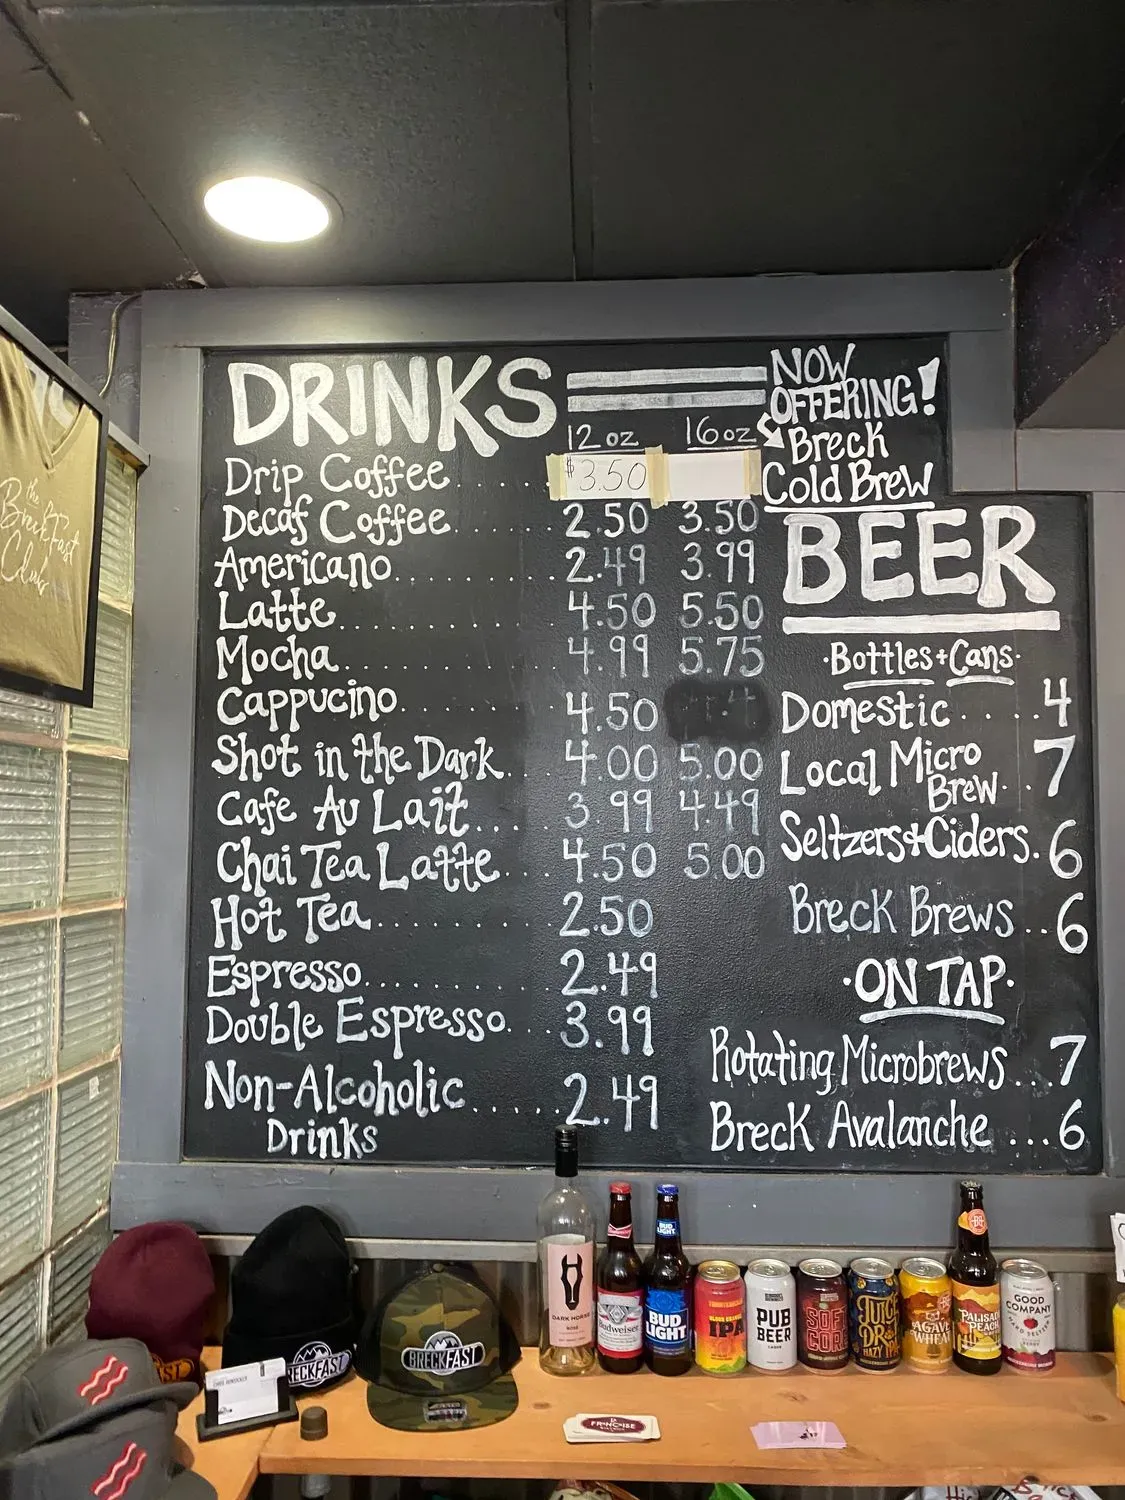 DRINKS
12 oz 16 oz
Drip Coffee..... $3.50
Decaf Coffee....... 2.50 3.50
Americano.......... 2.49 3.99
Latte.............. 4.50 5.50
Mocha.............. 4.99 5.75
Cappucino.......... 4.50
Shot in the Dark... 4.00 5.00
Cafe Au Lait.... 3.99 4.49
Chai Tea Latte.... 4.50 5.00
Hot Tea........... 2.50
Espresso........... 2.49
Double Espresso... 3.99
Non-Alcoholic...... 2.49
Drinks
NOW
OFFERING!
Breck
Cold Brew
BEER
·Bottles+Cans·
Domestic.....4
Local Micro
Brew...7
Seltzers+Ciders.6
Breck Brews..6
·ON TAP·
Rotating Microbrews...7
Breck Avalanche...6
the
Breakfast
Club
BRECKFAST
BRECKFAST
DARK HORSE
Budweiser
BUD
LIGHT
BUD
LIGHT
IPA
PUB
BEER
LAGER
JUICE
DROP
HAZY IPA
AGAVE
WHEAT
PALISADE
PEACH
GOOD
COMPANY
HARD SELTZER
FRANÇOISE